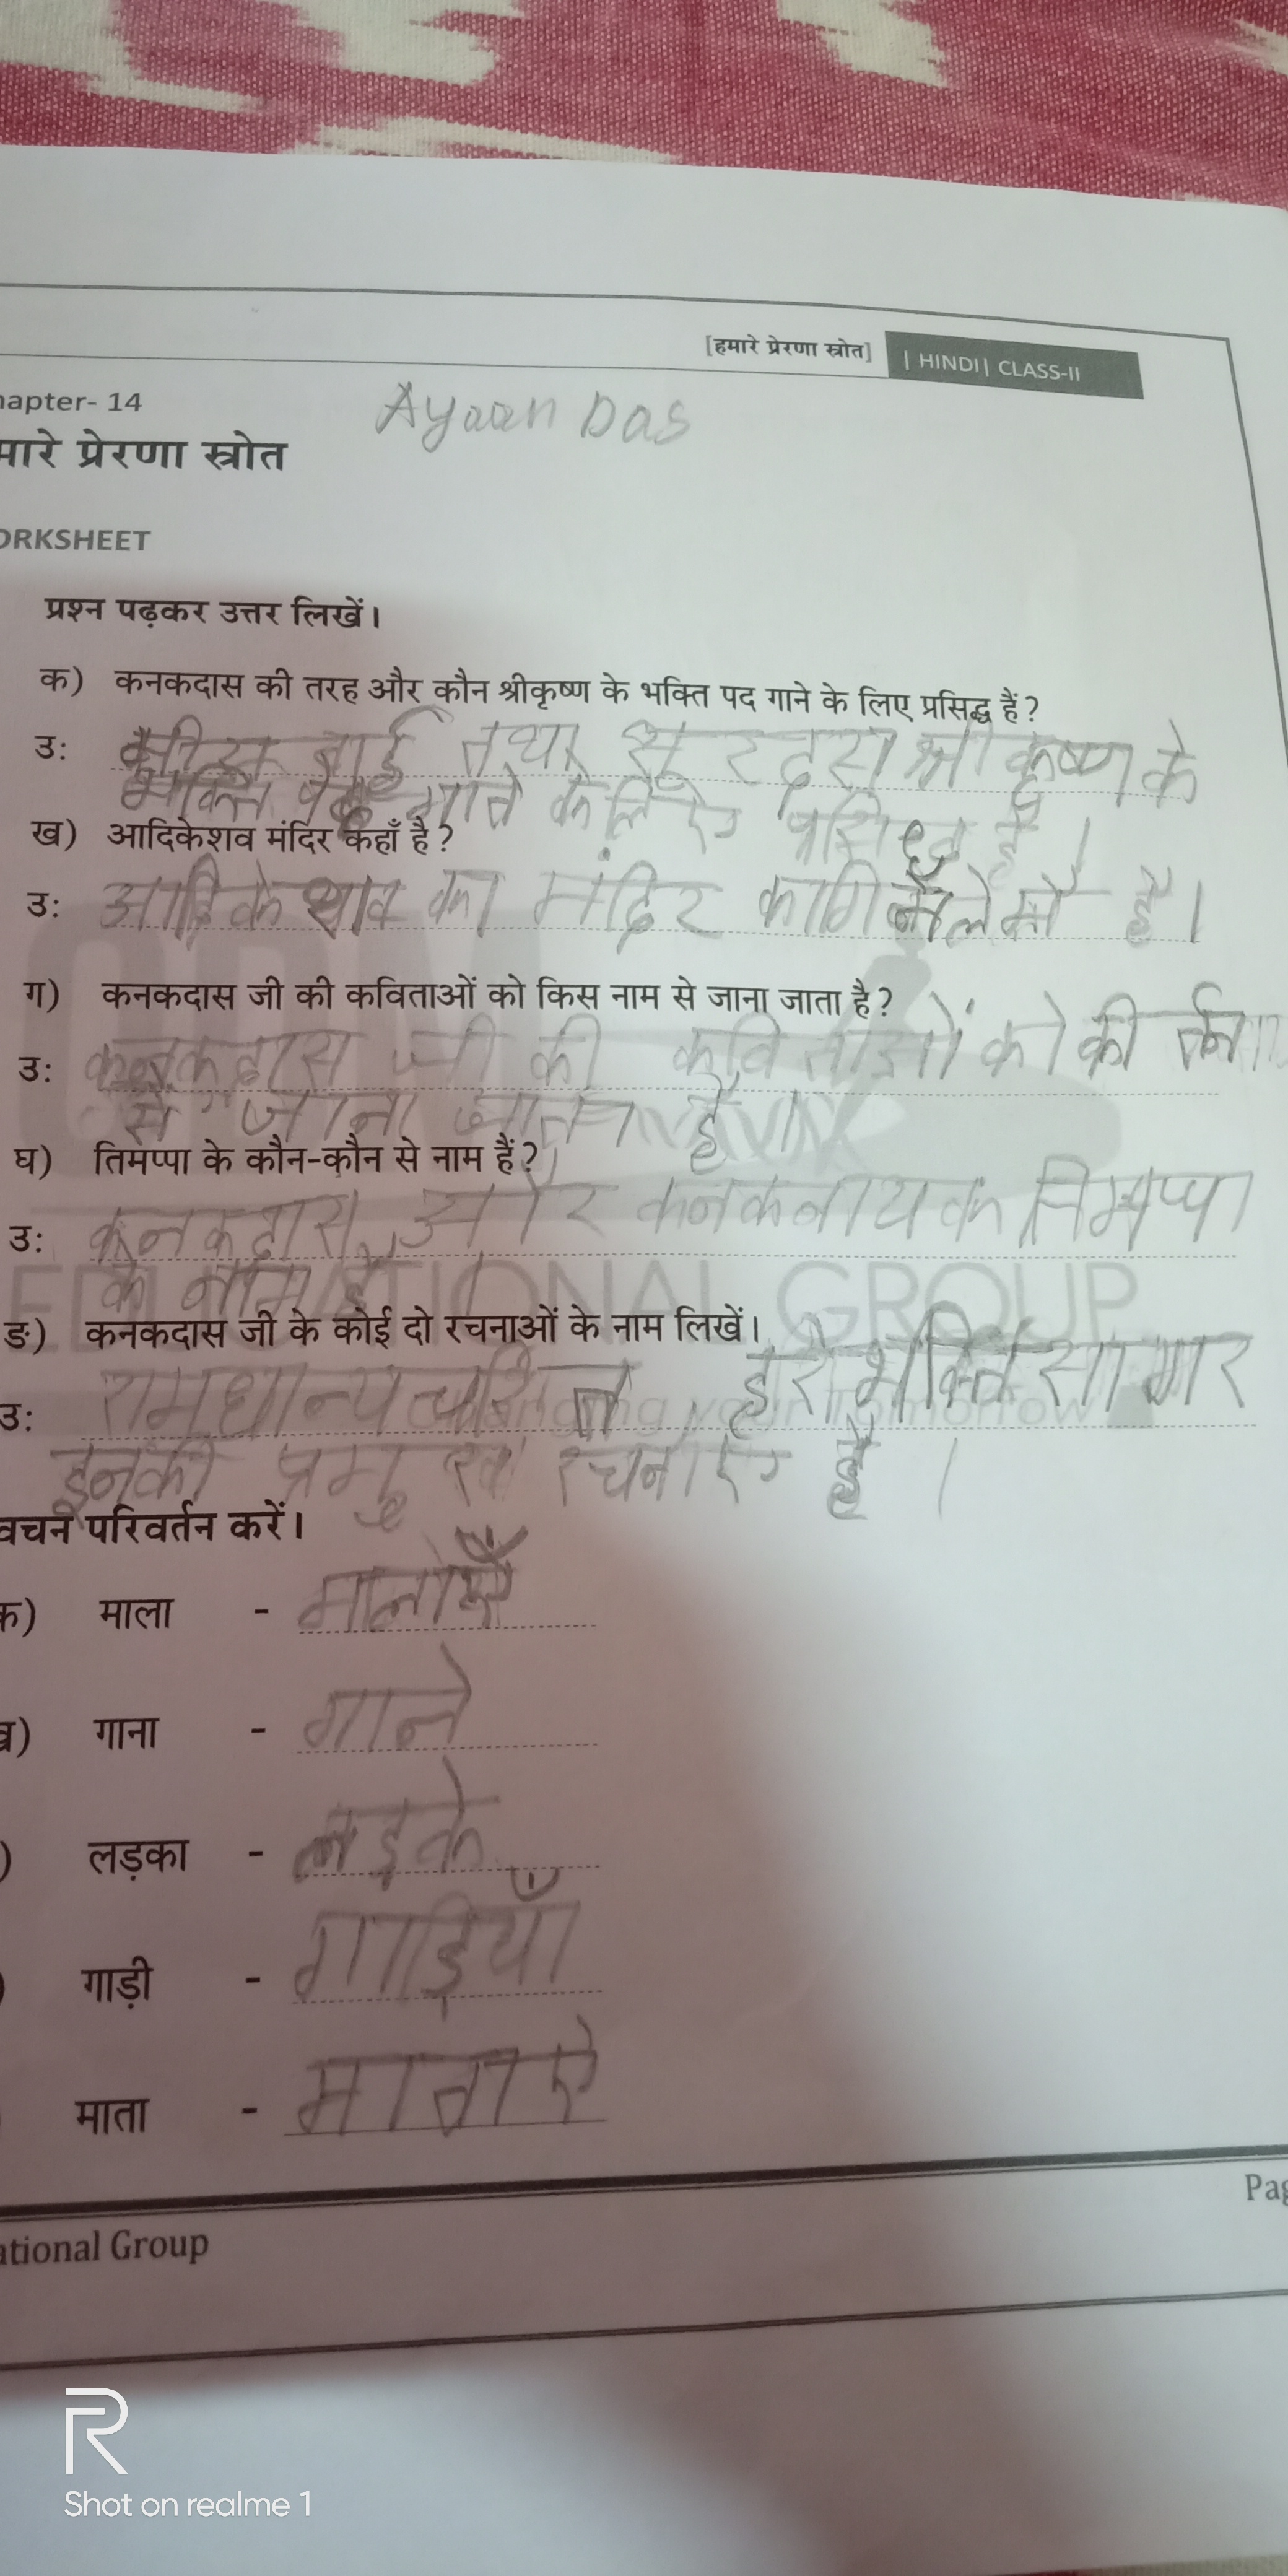 [हमारे प्रेरणा स्रोत] | HINDI | CLASS-II
hapter- 14
Ayaan Das
मारे प्रेरणा स्रोत
ORKSHEET
प्रश्न पढ़कर उत्तर लिखें।
क) कनकदास की तरह और कौन श्रीकृष्ण के भक्ति पद गाने के लिए प्रसिद्ध हैं?
उ: बाई तथा सूरदास श्री कृष्ण के
भक्ति गाने के लिए प्रसिद्ध है।
ख) आदिकेशव मंदिर कहाँ है?
उ: आदिकेशव का मंदिर है।
ग) कनकदास जी की कविताओं को किस नाम से जाना जाता है?
उ: कनकदास जी की कविताओं को कीर्तन
से जाना जाता है।
घ) तिमप्पा के कौन-कौन से नाम हैं?
उ: कनकदास और कनकनायक तिमप्पा
के नाम है।
ङ) कनकदास जी के कोई दो रचनाओं के नाम लिखें।
उ: रामधान्यचरित, हरिभक्तिसागर
इनकी प्रमुख रचनाएं है।
वचन परिवर्तन करें।
क) माला - मालाएँ
ख) गाना - गाने
) लड़का - लड़के
) गाड़ी - गाड़ियाँ
माता - माताऐ
EDUCATIONAL GROUP
Pag
ational Group
R
Shot on realme 1